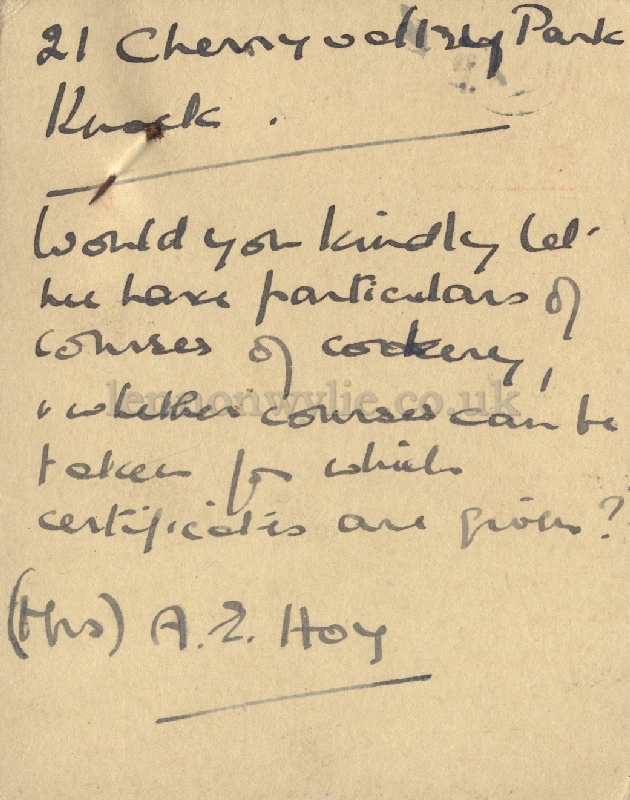 21 Cherryvalley Park
Knock.
Would you kindly let
me have particulars of
courses of cookery,
lennonwylie.co.uk
& whether courses can be
taken for which
certificates are given?
(Mrs) A. E. Hoy